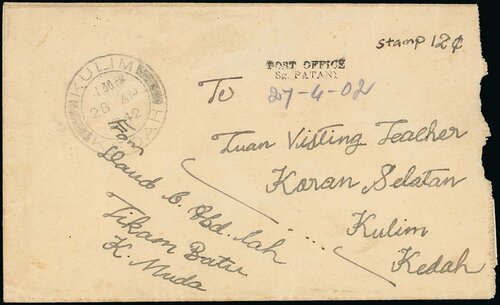 Stamp 12¢
POST OFFICE
SG. PATANI
27-4-02
KULIM
28 AP
KEDAH
To
Tuan Visting Teacher
Karan Selatan
Kulim
Kedah
From
Daud b. Abd. lah
Tikam Batu
K. Muda